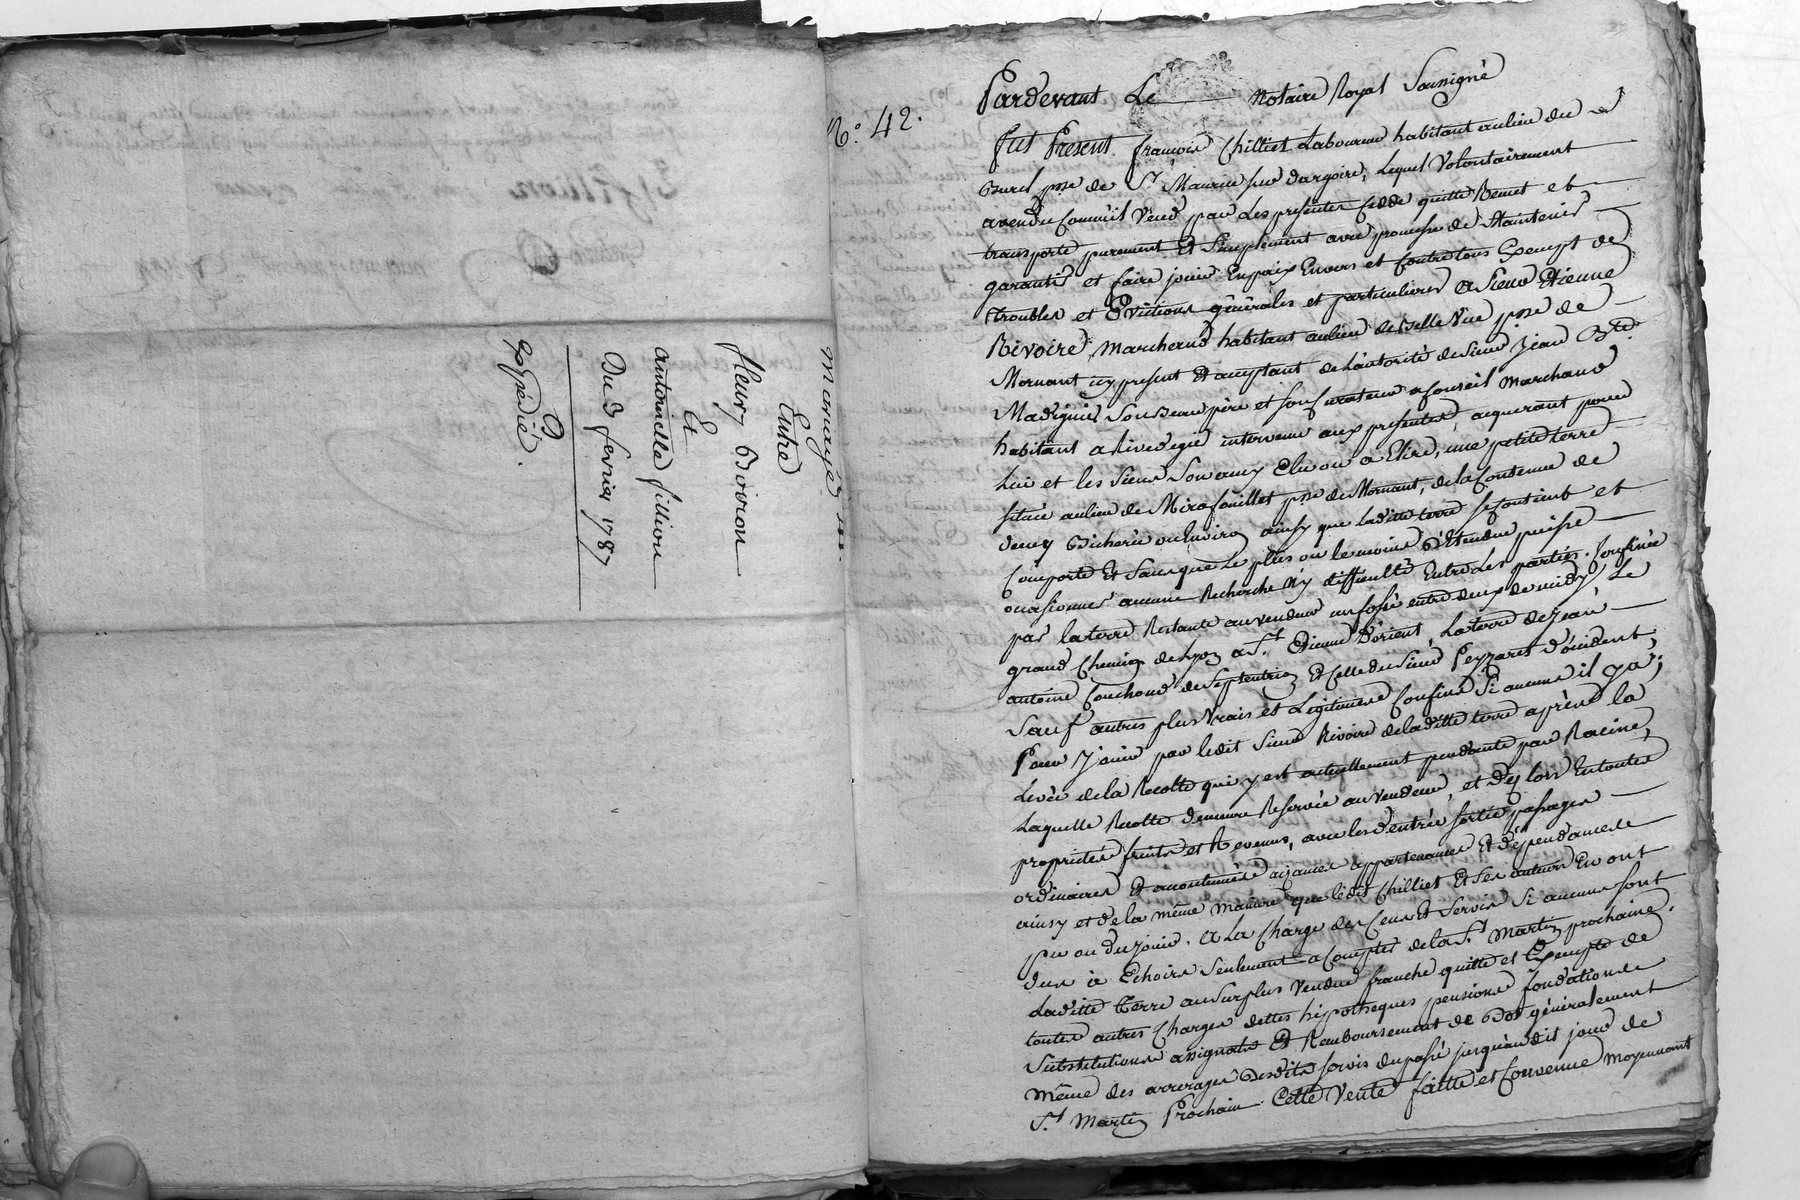 mariage
Entre
fleury Boiron
Et
antoinette fillion
Du 3 fevrier 1787
Expedié.
N.° 42.
Pardevant Le notaire Royal Soussigné
fut Present françois Chilliet Laboureur habitant au lieu du
Burel psse de St. Maurice sur dargoire, Lequel Volontairement
a vendu Comme il Vend par Les presentes Cedde quitte Remet et
transporte purement Et Simplement avec promesse de Maintenir
garantir et faire jouir En paix Envers et Contre tous Exempt de
troubles et Evictions générales et particulieres a Sieur Etienne
Rivoire, Marchand habitant au lieu de Belle Vue psse de
Mornant icy present Et acceptant de L'autorité du Sieur jean Bte.
Madignier Son Beau père et Son Curateur a Conseil Marchand
habitant a Rivedegier intervenu aux presentes, acquerant pour
Lui et les Siens Son amy Elu ou a Elire, une petite terre
Située au lieu de Mirofouillet psse de Mornant, de la Contenue de
deux Bicherées ou Environ ainsy que Laditte terre Se Contient et
Comporte Et Sans que Le plus ou le moins D'Etendue puisse
occasionner aucune Recherche N'y difficulté Entre Les parties. Confinée
par la terre Restante au vendeur un fossé entre deux de midy, Le
grand Chemin de Lyon a St. Etienne D'orient, La terre de jean
antoine Couchoud de Septentrion Et Celle du Sieur Peyzaret d'occident,
Sauf autres plus Vrais et Legitimes Confins Si aucuns il y a;
Pour jouir par ledit Sieur Rivoire de laditte terre après la
Levée de la Recolte qui y est actuellement pendante par Racine,
Laquelle Recolte demeure Reservée au vendeur, et dez lors En toutes
proprietés fruits et Revenus, avec les d'entrée sortie passages
ordinaires Et accoutumés aizances appartenances Et dépendances
ainsy et de la même maniere que ledit Chilliet Et Ses auteurs En ont
pu ou du jouir. a La Charge des Cens Et Servis Si aucuns Sont
dus à Echoir Seulement a Compter de la St. Martin prochaine.
Laditte Terre au Surplus Vendue franche quitte et Exempte de
toutes autres Charges dettes hipotheques pensions fondations
Substitutions assignats Et Remboursement de Dot généralement
même des arrerages Desdits Servis du passé jusqu'au dit jour de
St. Martin Prochain Cette Vente faitte et Convenue moyennant